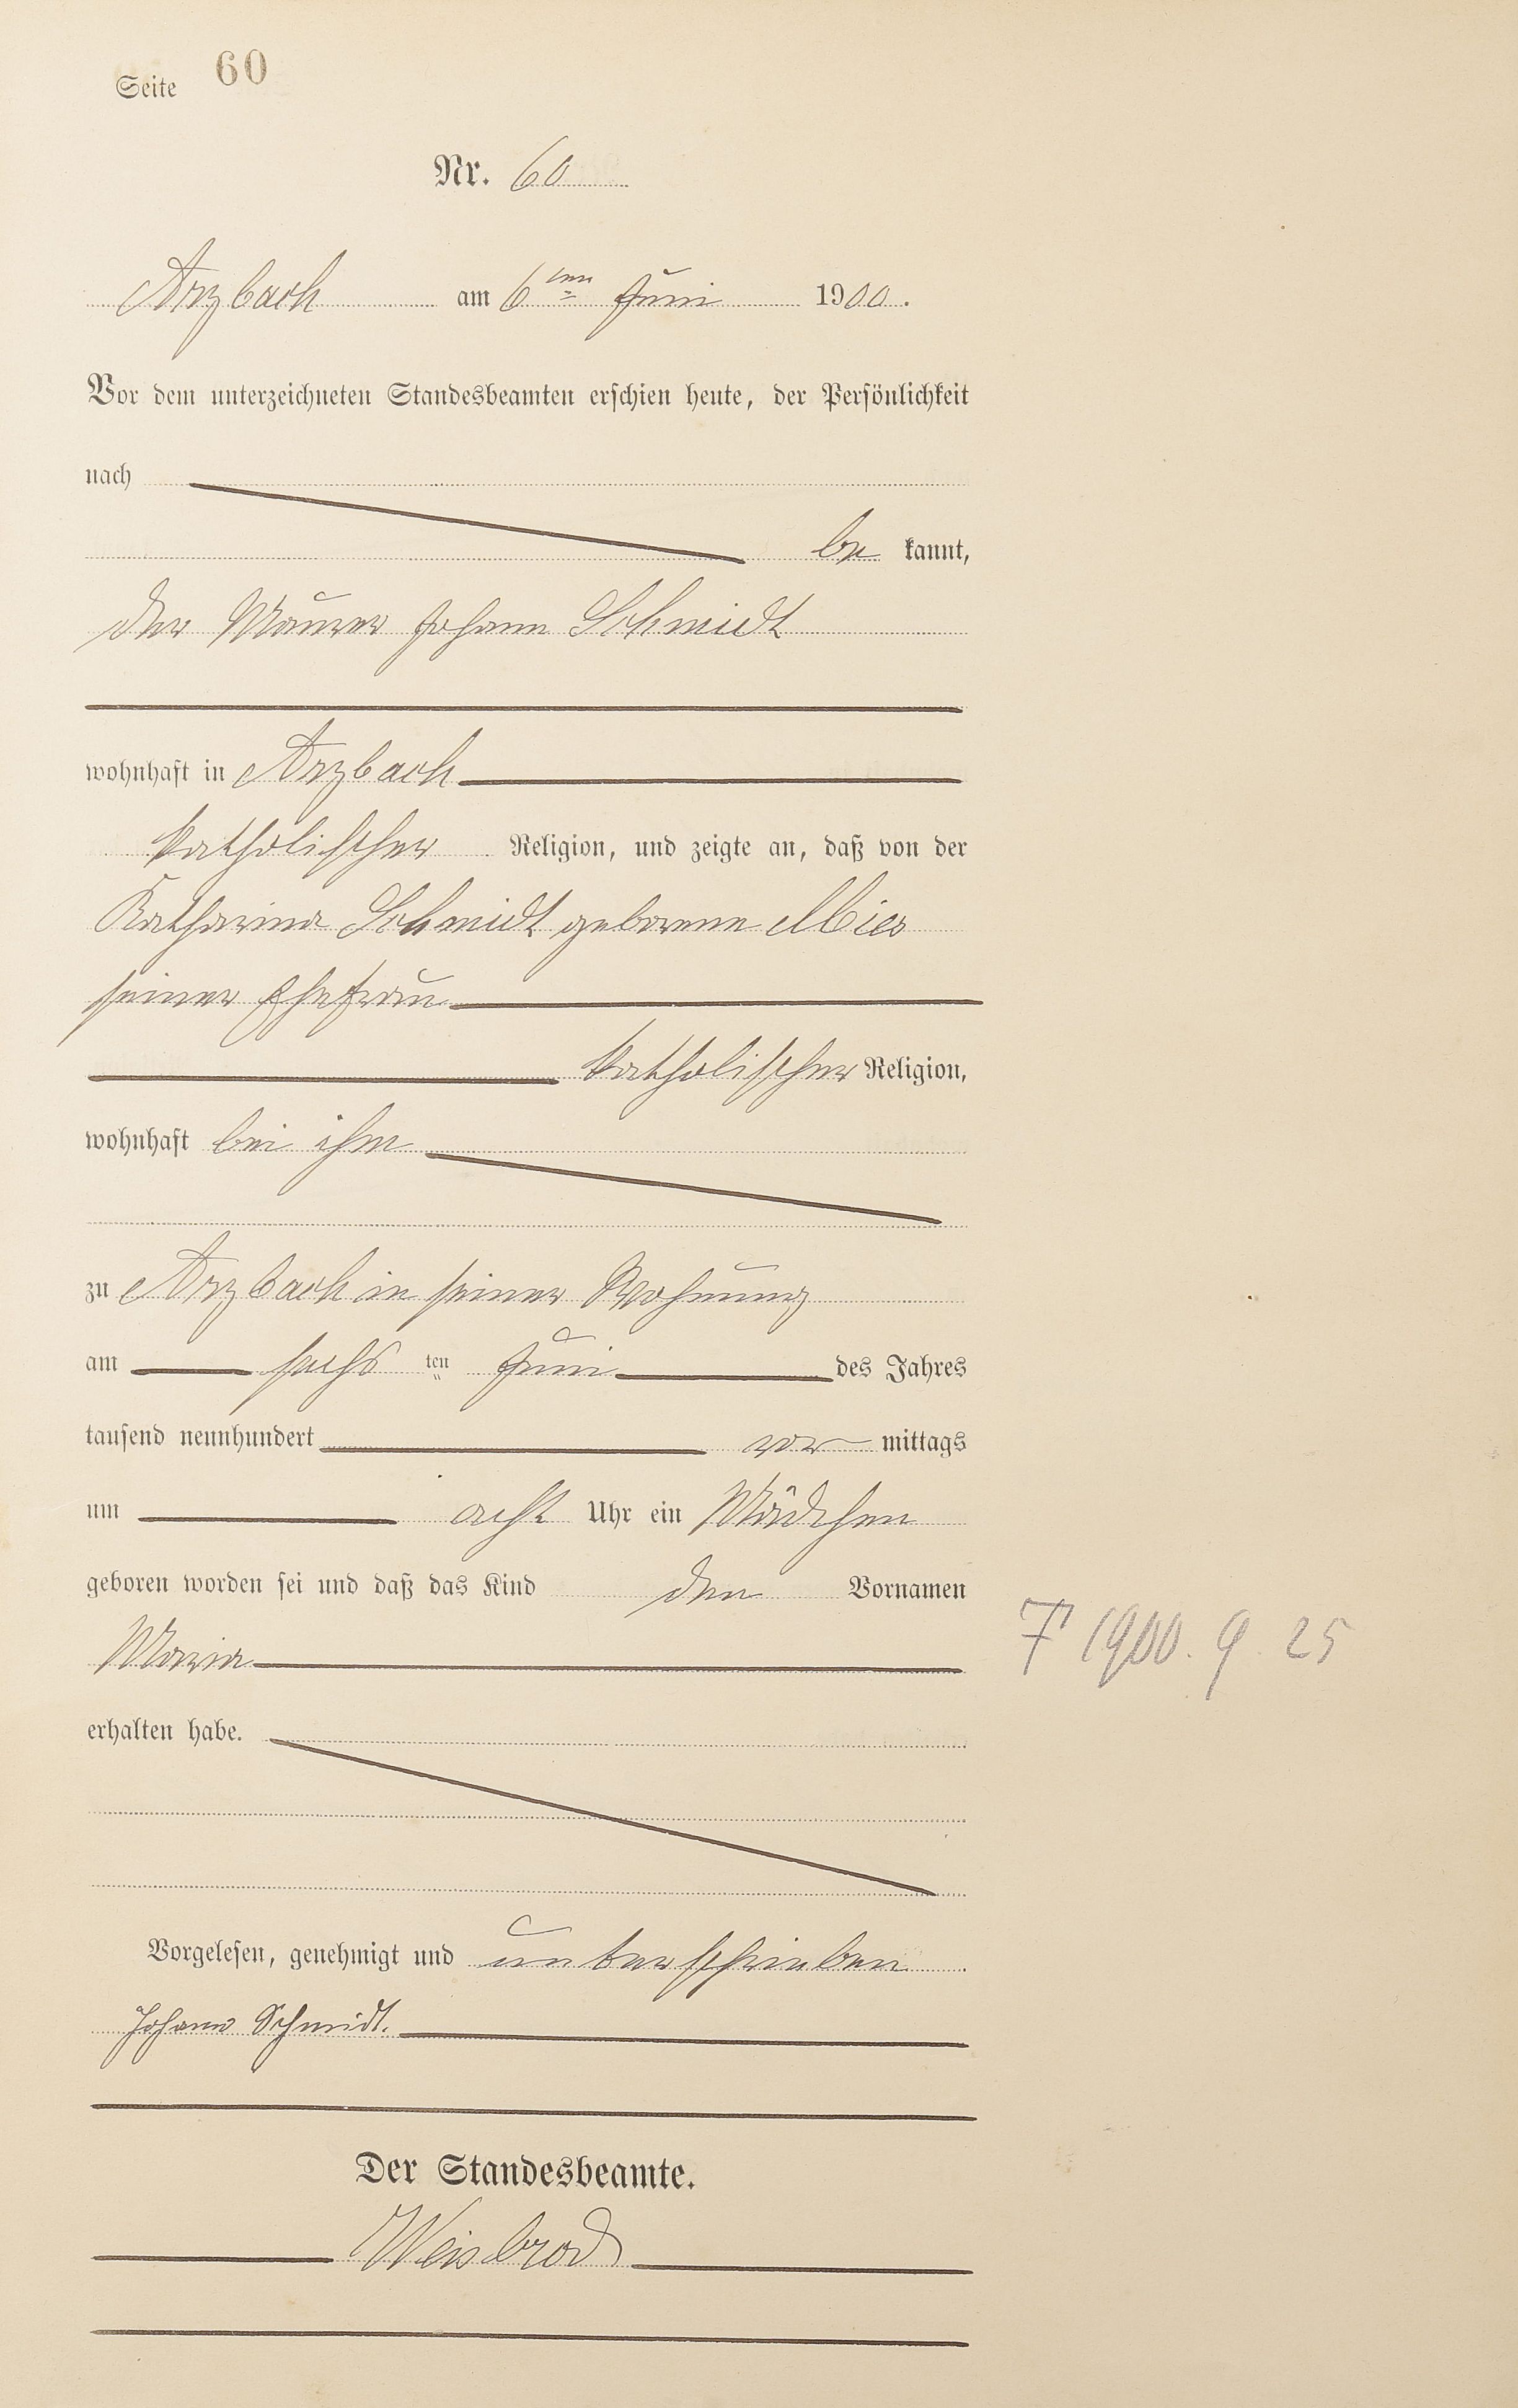 Seite 60
Nr. 60
Arzbach am 6ten Juni 1900.
Vor dem unterzeichneten Standesbeamten erschien heute, der Persönlichkeit
nach
be kannt,
der Maurer Johann Schmidt
wohnhaft in Arzbach
katholischer Religion, und zeigte an, daß von der
Katharina Schmidt geborene Mies
seiner Ehefrau
katholischer Religion,
wohnhaft bei ihm
zu Arzbach in seiner Wohnung
am sechs ten Juni des Jahres
tausend neunhundert vor mittags
um acht Uhr ein Mädchen
geboren worden sei und daß das Kind den Vornamen
Maria
† 1900. 9. 25
erhalten habe.
Vorgelesen, genehmigt und unterschrieben
Johann Schmidt.
Der Standesbeamte.
Weisbrod